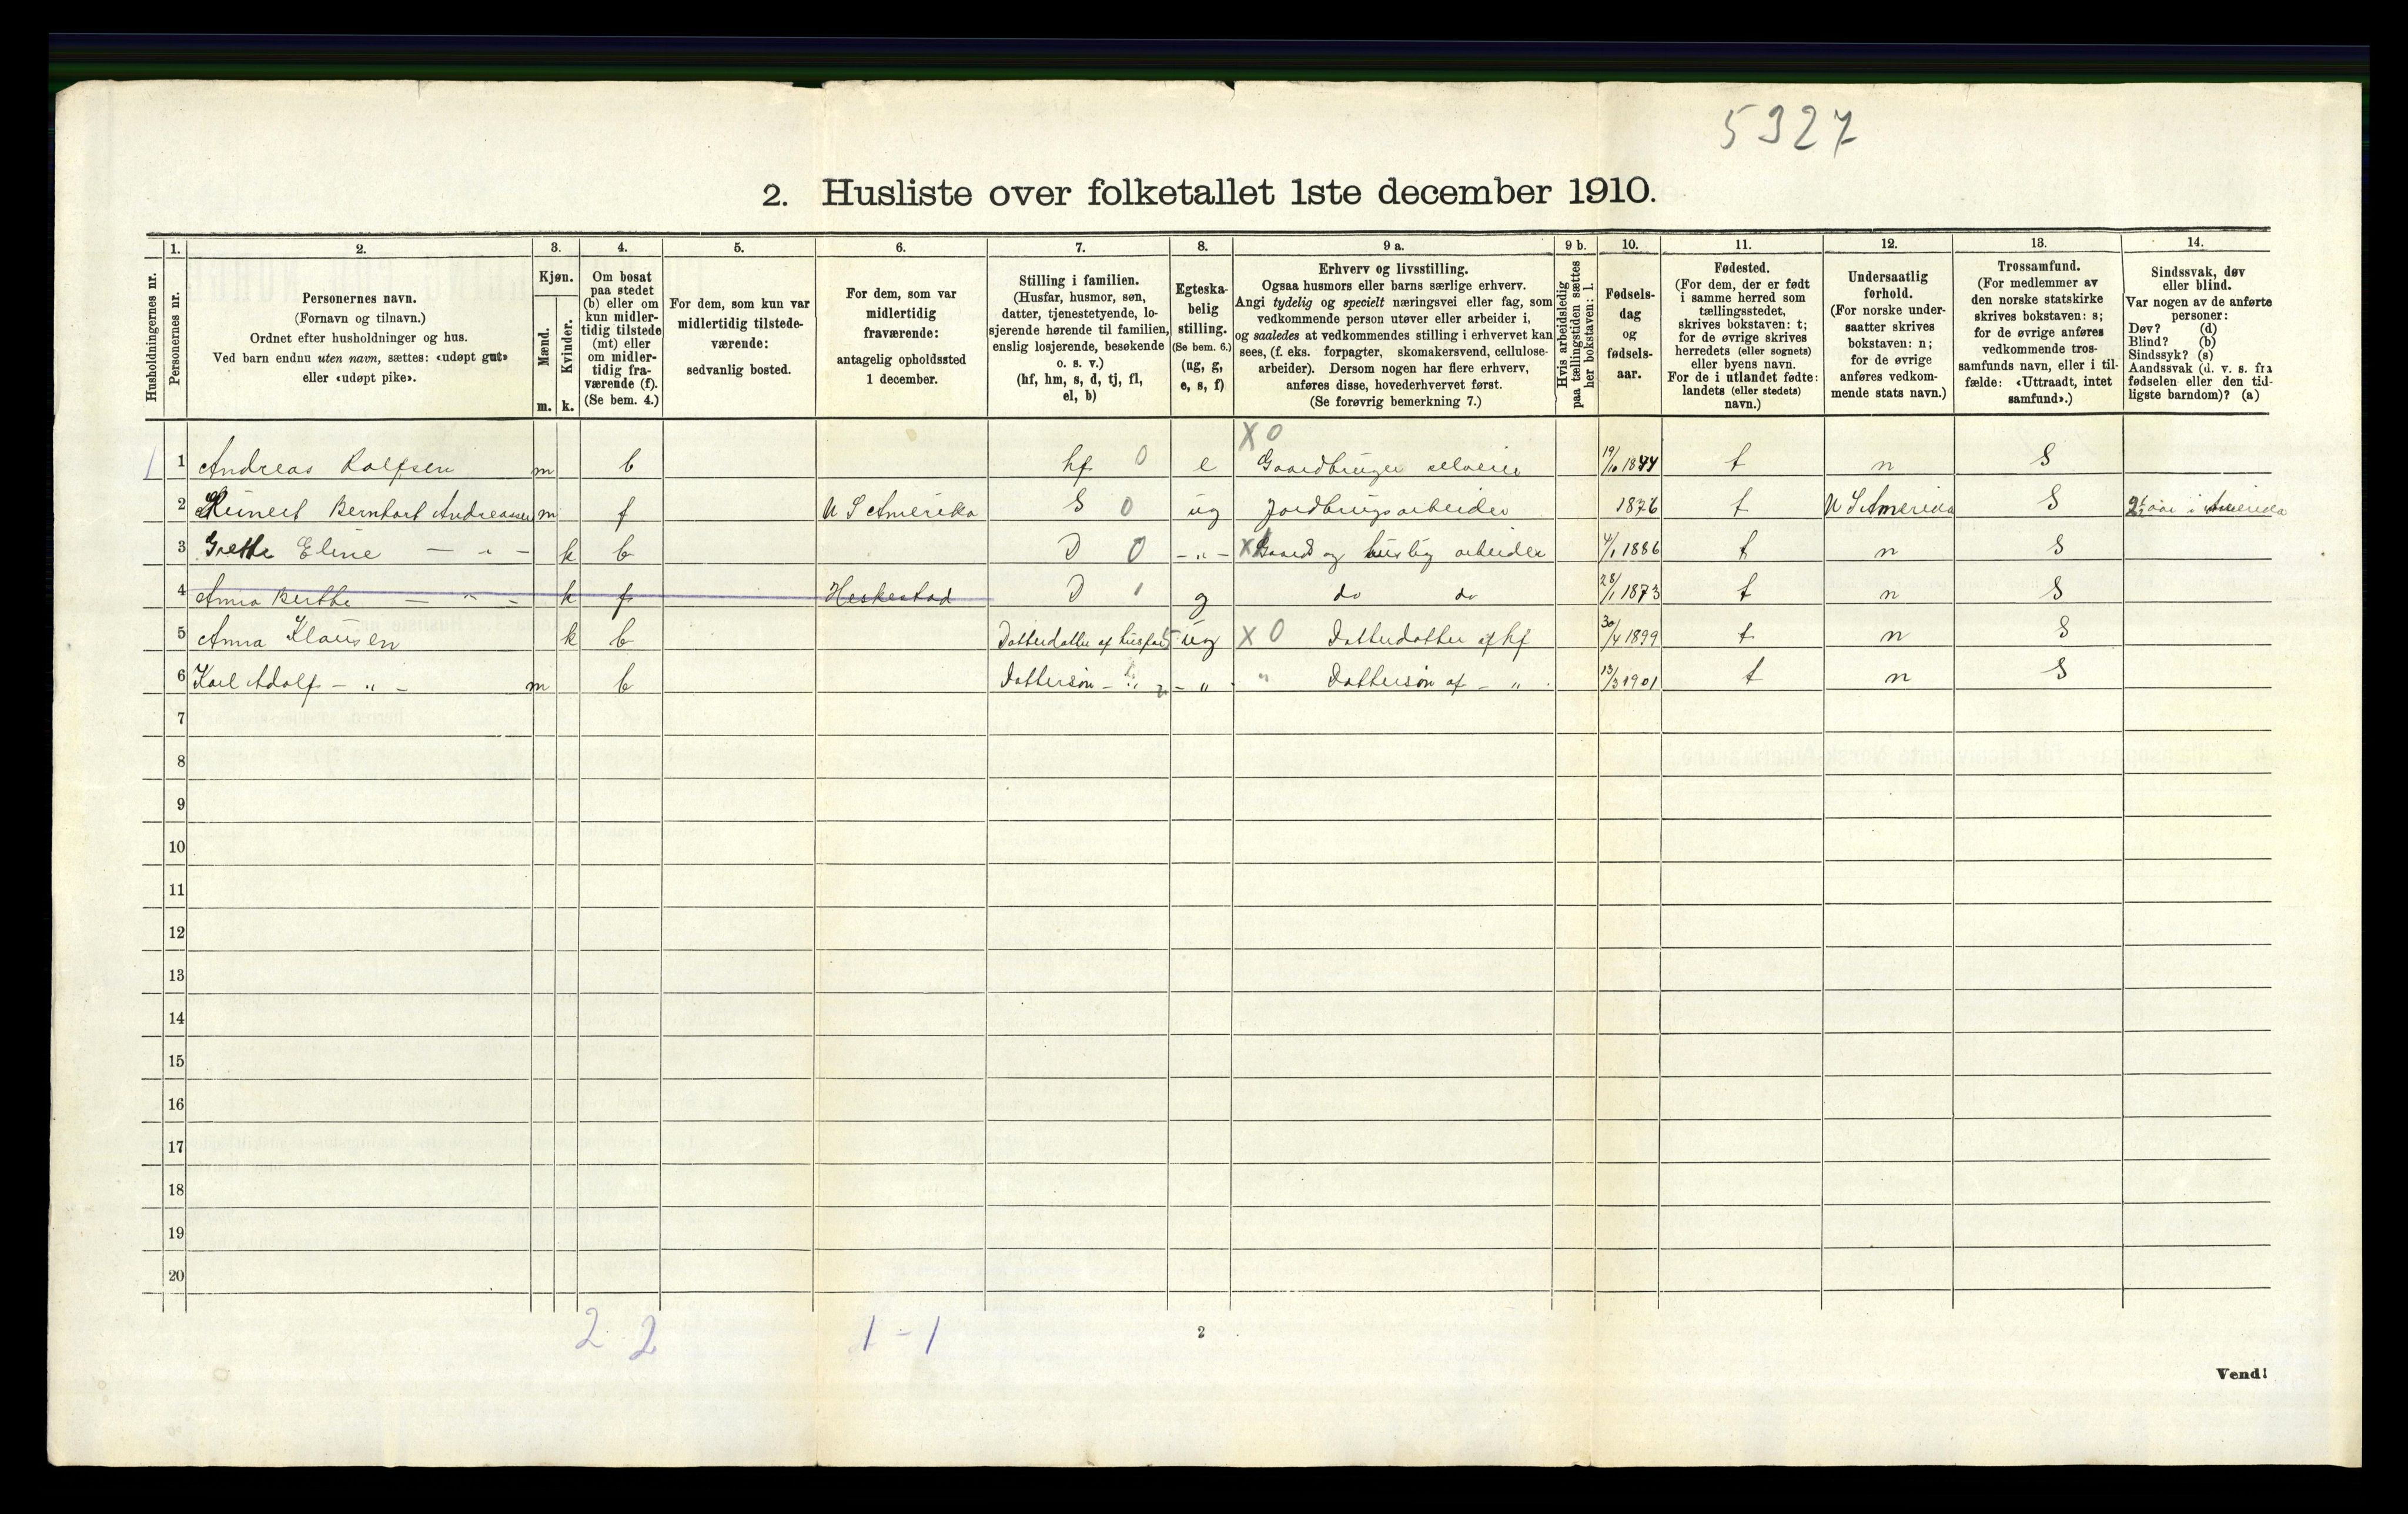 5327
2. Husliste over folketallet 1ste december 1910.
Husholdningernes nr.
1.
Personernes nr.
2.
Personernes navn.
(Fornavn og tilnavn.)
Ordnet efter husholdninger og hus.
Ved barn endnu uten navn, sættes: «udøpt gut»
eller «udøpt pike».
3.
Kjøn.
Mænd.
Kvinder.
m. k.
4.
Om bosat
paa stedet
(b) eller om
kun midler-
tidig tilstede
(mt) eller
om midler-
tidig fra-
værende (f).
(Se bem. 4.)
5.
For dem, som kun var
midlertidig tilstede-
værende:
sedvanlig bosted.
6.
For dem, som var
midlertidig
fraværende:
antagelig opholdssted
1 december.
7.
Stilling i familien.
(Husfar, husmor, søn,
datter, tjenestetyende, lo-
sjerende hørende til familien,
enslig losjerende, besøkende
o. s. v.)
(hf, hm, s, d, tj, fl,
el, b)
8.
Egteska-
belig
stilling.
(Se bem. 6.)
(ug, g,
e, s, f)
9 a.
Erhverv og livsstilling.
Ogsaa husmors eller barns særlige erhverv.
Angi tydelig og specielt næringsvei eller fag, som
vedkommende person utøver eller arbeider i,
og saaledes at vedkommendes stilling i erhvervet kan
sees, (f. eks. forpagter, skomakersvend, cellulose-
arbeider). Dersom nogen har flere erhverv,
anføres disse, hovederhvervet først.
(Se forøvrig bemerkning 7.)
9 b.
Hvis arbeidsledig
paa tællingstiden sættes
her bokstaven: l.
10.
Fødsels-
dag
og
fødsels-
aar.
11.
Fødested.
(For dem, der er født
i samme herred som
tællingsstedet,
skrives bokstaven: t;
for de øvrige skrives
herredets (eller sognets)
eller byens navn.
For de i utlandet fødte:
landets (eller stedets)
navn.)
12.
Undersaatlig
forhold.
(For norske under-
saatter skrives
bokstaven: n;
for de øvrige
anføres vedkom-
mende stats navn.)
13.
Trossamfund.
(For medlemmer av
den norske statskirke
skrives bokstaven: s;
for de øvrige anføres
vedkommende tros-
samfunds navn, eller i til-
fælde: «Uttraadt, intet
samfund».)
14.
Sindssvak, døv
eller blind.
Var nogen av de anførte
personer:
Døv? (d)
Blind? (b)
Sindssyk? (s)
Aandssvak (d. v. s. fra
fødselen eller den tid-
ligste barndom)? (a)
X 0
1 1 Andreas Rolfsen m b hf 0 e Gaardbruger selveier 19/10 1844 t n S
2 Reinert Bernhart Andreassen m f U S Amerika S 0 ug Jordbrugsarbeider 1876 t U S Amerika S aar i Amerika
3 Grethe Eline — " — k b D 0 - " - X Gaards og huslig arbeider 4/1 1886 t n S
4 Anna Berthe — " - k f Heskestad D g do do 28/1 1873 t n S
5 Anna Klausen k b Datterdatter af husfar ug X 0 Datterdatter af hf 30/4 1899 t n S
6 Karl Adolf - " - m b Dattersøn - " - - " " Dattersøn af - " 13/3 1901 t n S
7
8
9
10
11
12
13
14
15
16
17
18
19
20
2 2 1 - 1
2
Vend!